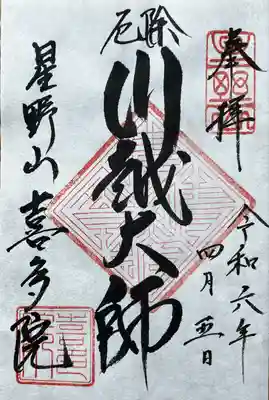 奉拝
令和六年
四月五日
厄除
川越大師
星野山
喜多院